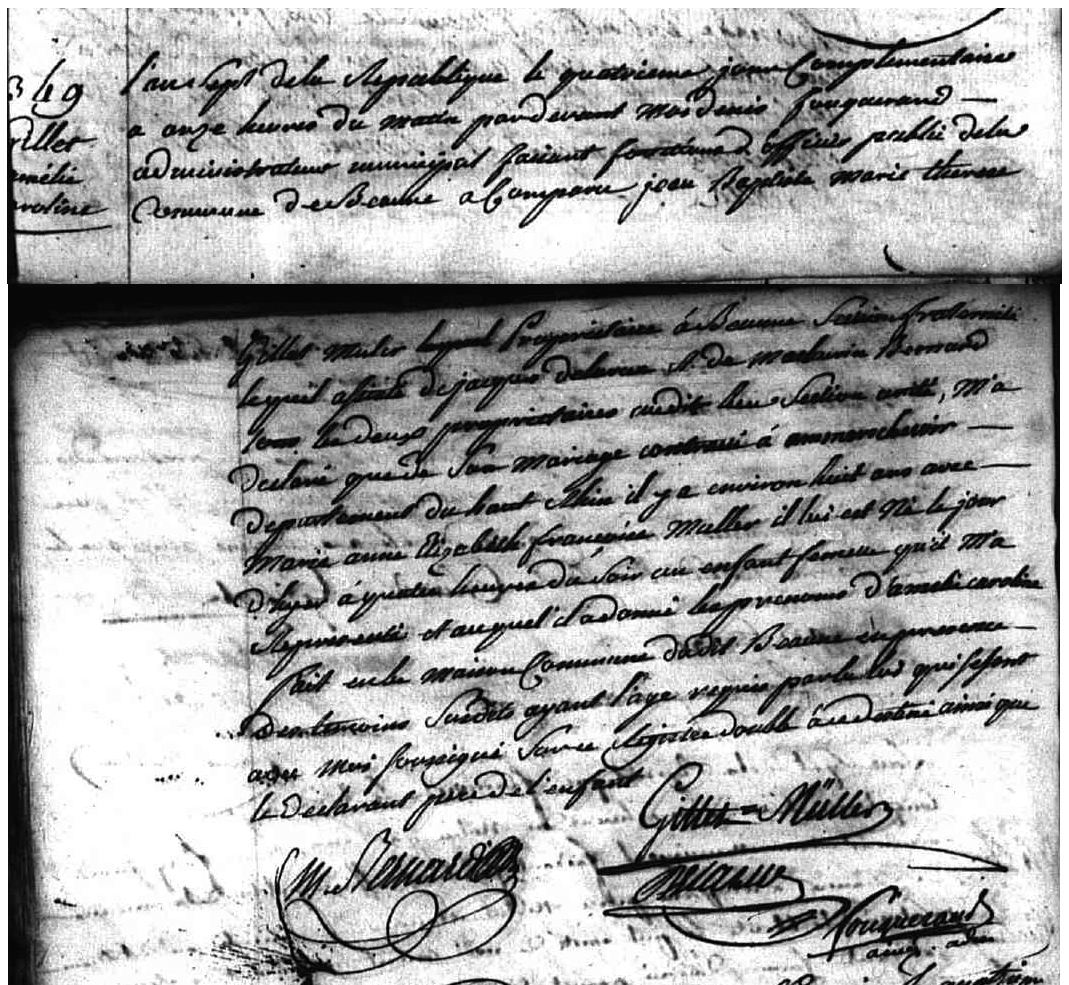 349
Gillet
amélie
caroline
l'an sept de la Republique le quatrieme jour Complementaire
a onze heures du matin pardevant moi denis fouquerand —
administrateur municipal faisant fonctions d'officier public de la
Commune de Beaune a Comparu jean Baptiste marie therese
Gillet Muler Propriétaire à Beaune Section fraternité
lequel assisté de jacques delarue et de mathurin Bernard
tous les deux propriétaires audit lieu Section unité, m'a
declaré que de Son mariage contracté à ammerchwir —
departement du haut Rhin il y a environ huit ans avec —
Marie anne Elizabeth françoise Muller il lui est Né le jour
d'hyer à quatre heures du Soir un enfant femelle qu'il m'a
Representé et auquel il a donné les prenoms d'amelie caroline
fait en la maison Commune dudit Beaune en presence —
des temoins Susdits ayant l'age requis par la loi qui se sont
avec moi soussigné Sur ce Registre double à ce destiné ainsi que
le declarant pere de l'enfant
Gillet = Müller
M. Bernard
delarue
Fouquerand